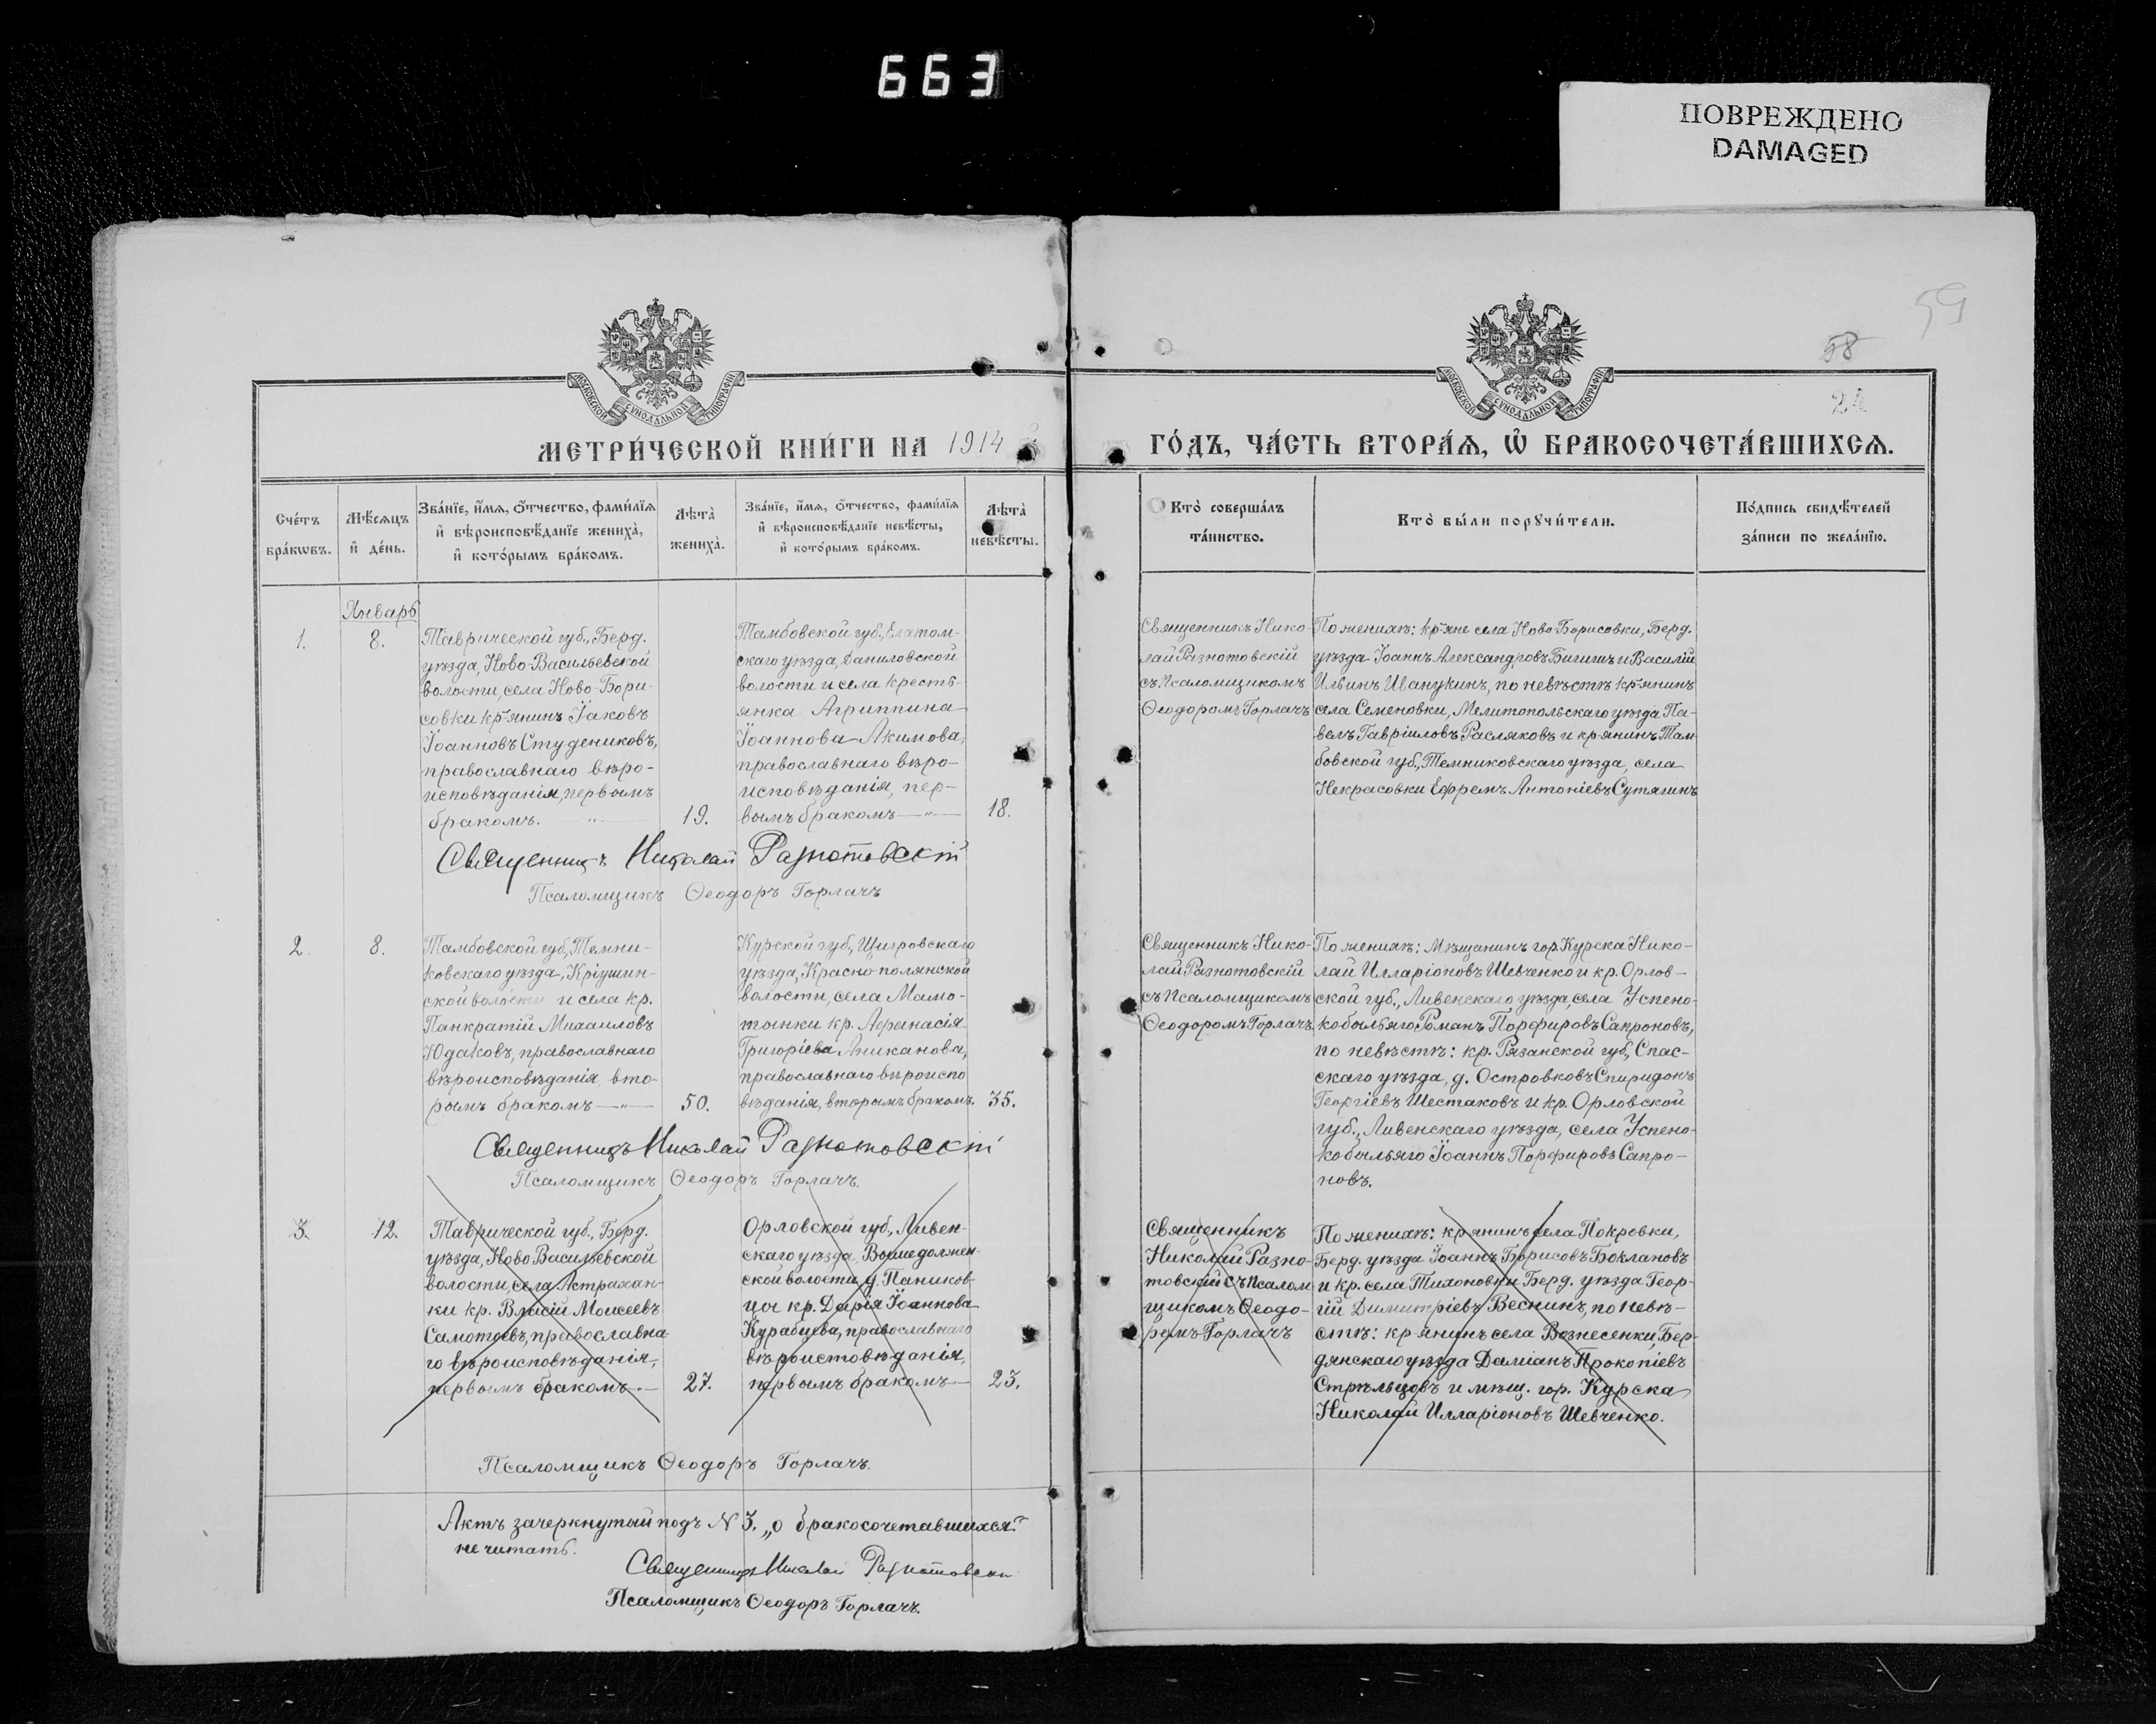 663
ПОВРЕЖДЕНО
DAMAGED
59
58
24
МОСКОВСКОЙ СѴНОДАЛЬНОЙ ТИПОГРАФІИ
МОСКОВСКОЙ СѴНОДАЛЬНОЙ ТИПОГРАФІИ
МЕТРИ́ЧЕСКОЙ КНИ́ГИ НА 1914
ГО́ДЪ, ЧА́СТЬ ВТОРА́Ѧ, Ѽ БРАКОСОЧЕТА́ВШИХСѦ.
Сче́тъ бра́кѡвъ.
Мѣ́сѧцъ и҆ де́нь.
Зва́нїе, и҆́мѧ, ѻ҆́тчество, фами́лїѧ
и҆ вѣроисповѣ́данїе жениха̀,
и҆ кото́рымъ бра́комъ.
Лѣта̀ жениха̀.
Зва́нїе, и҆́мѧ, ѻ҆́тчество, фами́лїѧ
и҆ вѣроисповѣ́данїе невѣ́сты,
и҆ кото́рымъ бра́комъ.
Лѣта̀ невѣ́сты.
Кто̀ соверша́лъ
та́инство.
Кто̀ бы́ли порꙋчи́тели.
По́дпись свидѣ́телей
за́писи по жела́нїю.
Январь
1.
8.
Таврической губ., Берд.
уѣзда, Ново-Васильевской
волости, села Ново-Бори-
совки кр-янинъ Іаковъ
Іоанновъ Студениковъ,
православнаго вѣро-
исповѣданія, первымъ
бракомъ. — " —
19.
Тамбовской губ., Елатом-
скаго уѣзда, Даниловской
волости и села кресть-
янка Агриппина
Іоаннова Акимова,
православнаго вѣро-
исповѣданія, пер-
вымъ бракомъ — " —
18.
Священникъ Нико-
лай Разнотовскій
съ Псаломщикомъ
Ѳеодоромъ Горлачъ
По женихѣ: кр-яне села Ново-Борисовки, Берд.
уѣзда Іоаннъ Александровъ Бигишъ и Василій
Ильинъ Иванукинъ, по невѣстѣ кр-янинъ
села Семеновки, Мелитопольскаго уѣзда Па-
велъ Гавріиловъ Расляковъ и кр-янинъ Там
бовской губ., Темниковскаго уѣзда, села
Некрасовки Ефремъ Антоніевъ Сутягинъ
Священникъ Николай Разнотовскій
Псаломщикъ Ѳеодоръ Горлачъ
2.
8.
Тамбовской губ., Темни-
ковскаго уѣзда, Кріушин-
ской волости и села кр.
Панкратій Михаиловъ
Юдаковъ, православнаго
вѣроисповѣданія вто-
рымъ бракомъ — " —
50.
Курской губ., Щигровскаго
уѣзда, Красно-полянской
волости, села Мамо-
тынки кр. Аѳанасія
Григоріева Аниканова,
православнаго вѣроиспо
вѣданія, вторымъ бракомъ.
35.
Священникъ Нико-
лай Разнотовскій
съ Псаломщикомъ
Ѳеодоромъ Горлачъ
По женихѣ: Мѣщанинъ гор. Курска Нико-
лай Илларіоновъ Шевченко и кр. Орлов-
ской губ., Ливенскаго уѣзда, села Успено-
кобыльяго Романъ Порфировъ Сапроновъ,
по невѣстѣ: кр. Рязанской губ., Спас-
скаго уѣзда, д. Островковъ Спиридонъ
Георгіевъ Шестаковъ и кр. Орловской
губ., Ливенскаго уѣзда, села Успено-
кобыльяго Іоаннъ Порфировъ Сапро-
новъ.
Священникъ Николай Разнотовскій
Псаломщикъ Ѳеодоръ Горлачъ.
3.
12.
Таврической губ., Берд.
уѣзда, Ново Васильевской
волости, села Астрахан-
ки кр. Власій Моисеевъ
Самотоевъ, православна-
го вѣроисповѣданія,
первымъ бракомъ. —
27.
Орловской губ., Ливен-
скаго уѣзда, Вышедолжен-
ской волости, д. Паников-
цы кр. Дарія Іоаннова
Курабцева, православнаго
вѣроистовѣданія,
первымъ бракомъ —
23.
Священникъ
Николай Разно-
товскій съ Псалом
щикомъ Ѳеодо-
ромъ Горлачъ
По женихѣ: кр-янинъ села Покровки,
Берд. уѣзда Іоаннъ Борисовъ Боклановъ
и кр. села Тихоновки Берд. уѣзда Геор-
гій Димитріевъ Веснинъ, по невѣ-
стѣ: кр-янинъ села Вознесенки, Бер-
дянскаго уѣзда Даміанъ Прокопіевъ
Стрѣльцовъ и мѣщ. гор. Курска
Николай Илларіоновъ Шевченко.
Псаломщикъ Ѳеодоръ Горлачъ.
Актъ зачеркнутый подъ № 3. „о бракосочетавшихся"
не читать.
Священникъ Николай Разнотовскій
Псаломщикъ Ѳеодоръ Горлачъ.